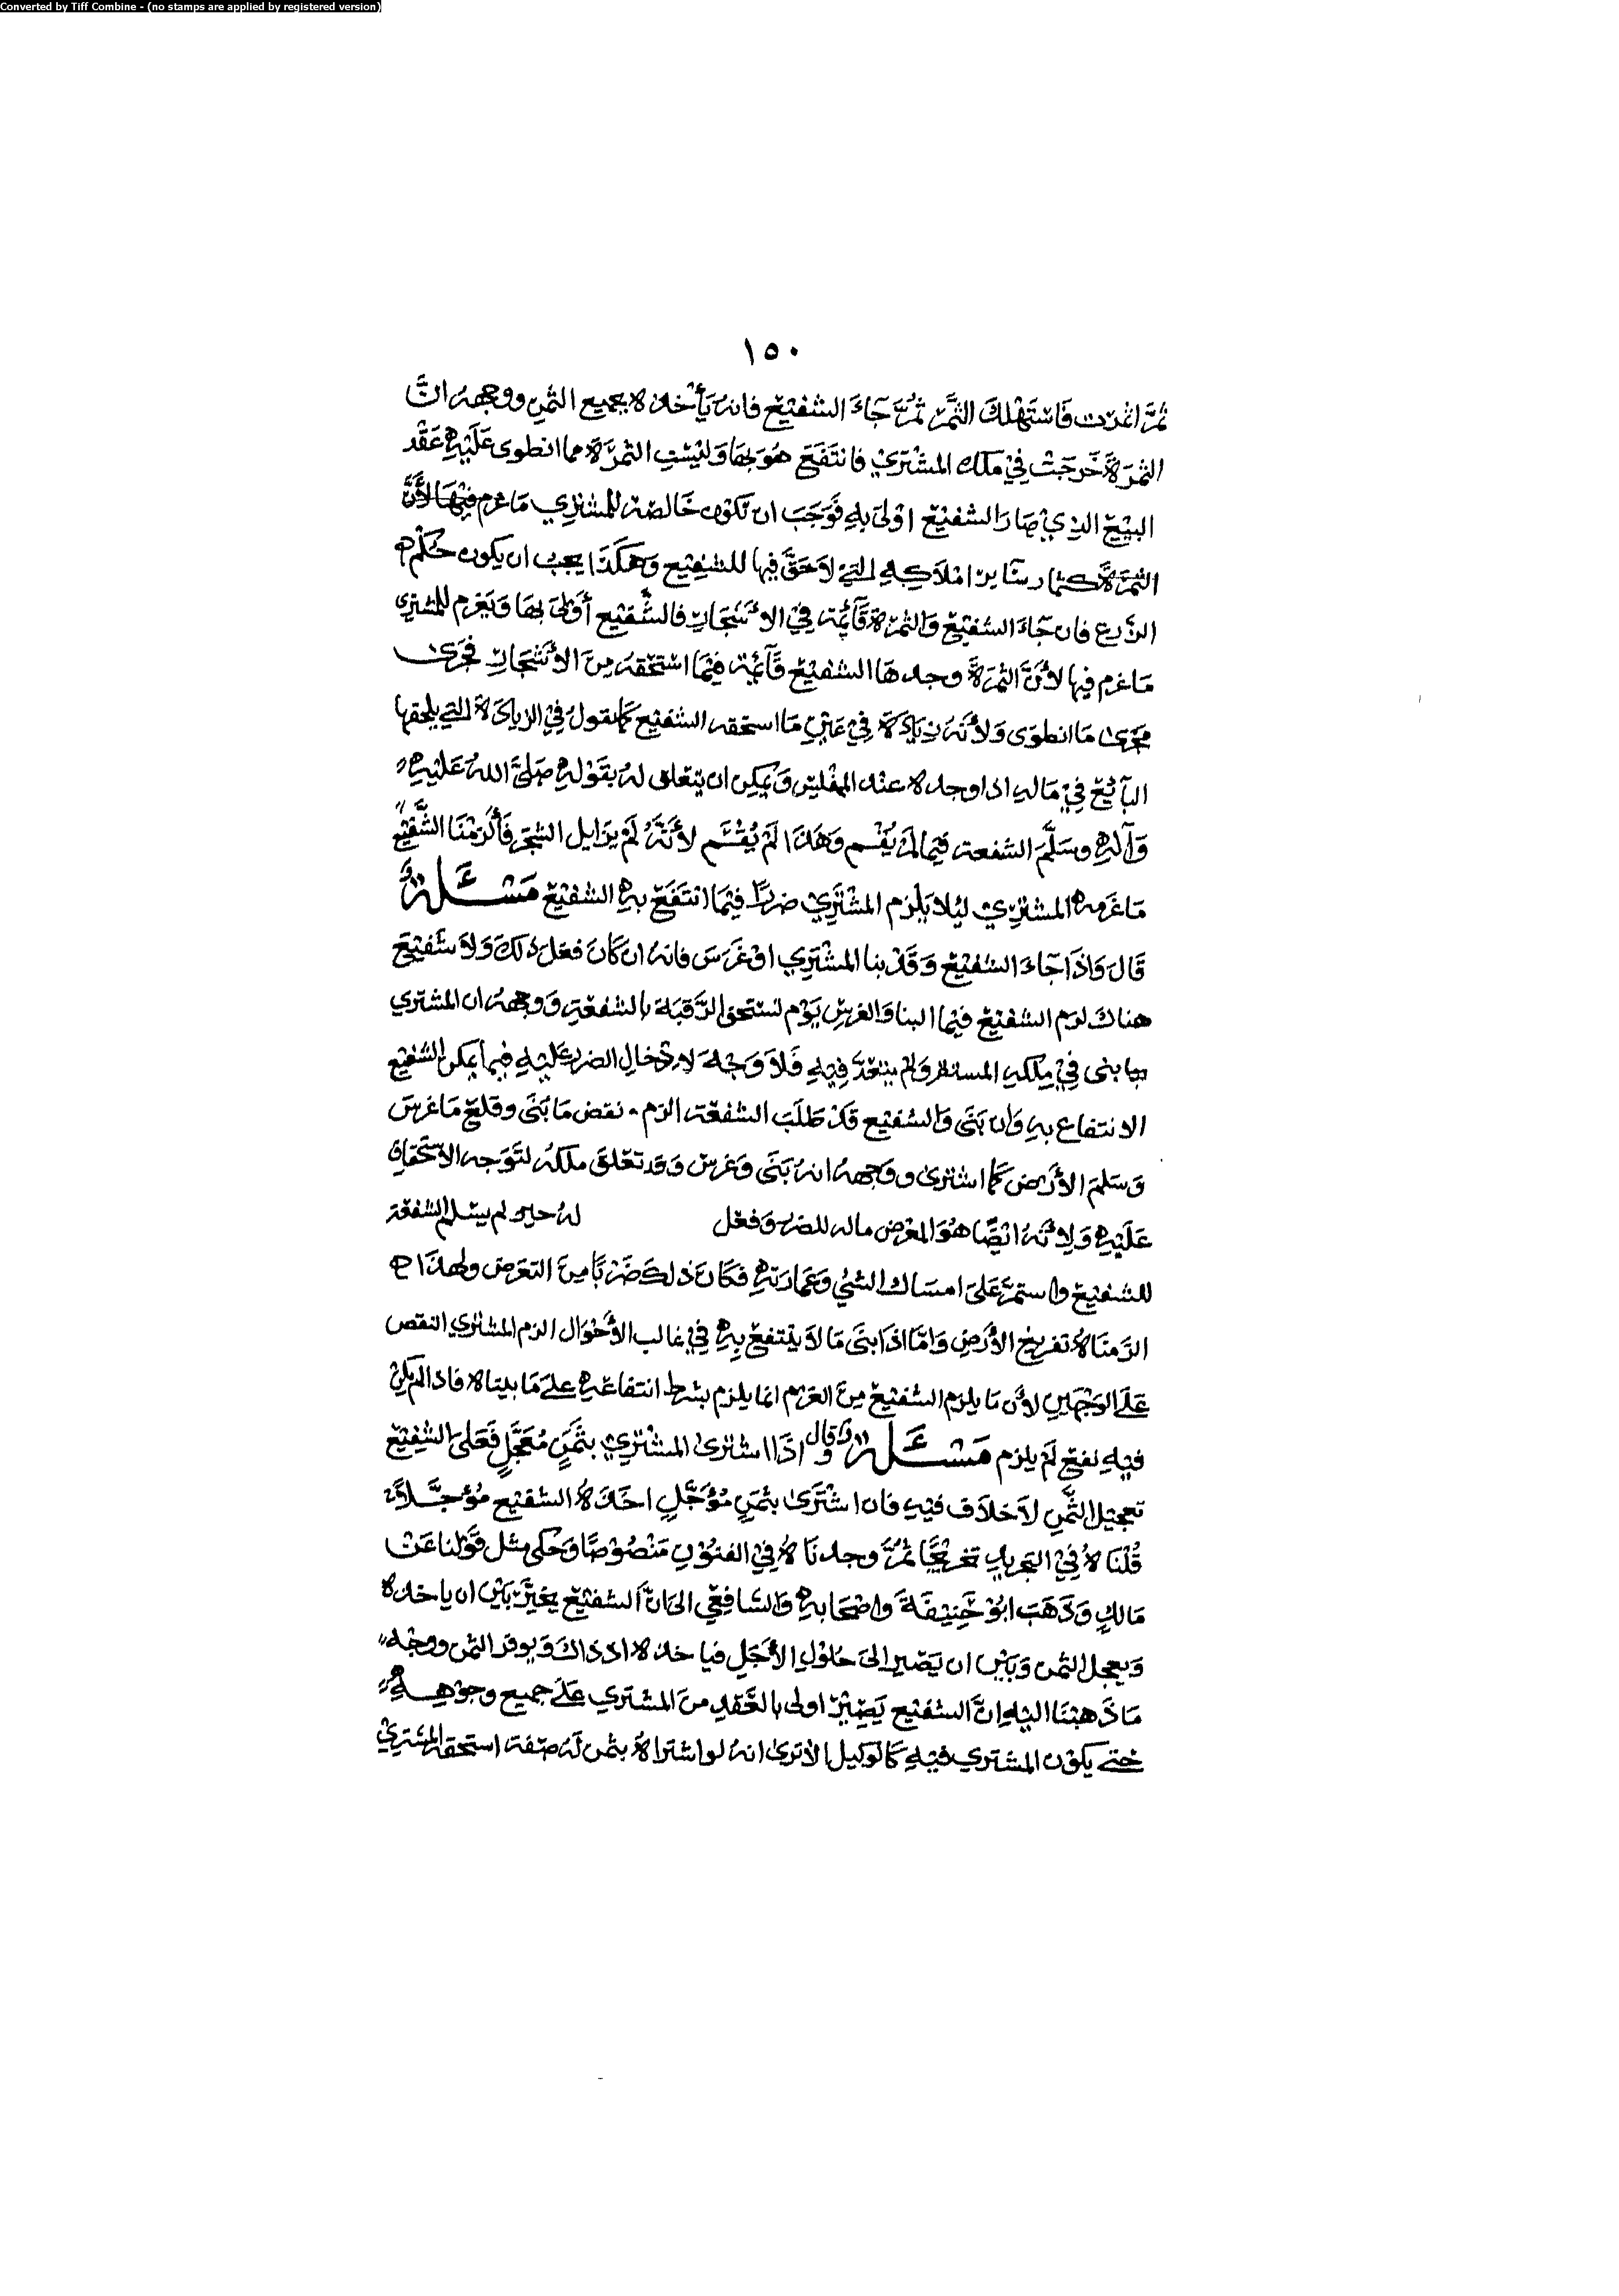 Converted by Tiff Combine - (no stamps are applied by registered version)
١٥٠
ثُمَّ اثمرت فَاسْتَهْلَكَ الثَّمَرَ ثُمَّ جَاءَ الشفيْعُ فانهُ يَأْخذهُ بجميع الثمنِ ووجههُ انَّ
الثمَرَةَ خَرجَتْ فِيْ ملك المشْتريْ فانتَفَعَ هُوَ بِهَا وَليْسَتِ الثمَرَةُ مما انطوى عَلَيْهِ عَقْد
البَيْعِ الذِيْ صَارَ الشفيْعُ اوْلىٰ بِهِ فَوَجَبَ ان تكوْن خَالصَة للمشتري مَا غرم فِيْهَا لأَنَّ
الثمَرَةَ كَسَايرِ امْلاَكِهِ التِيْ لاَ حَقَّ فيها للشفِيْع وَهكَذَا يجبُ ان يكون حُكْمُ
الزَّرعِ فان جَاءَ الشفِيْعُ وَالثمرَة قَآئِمَة فِيْ الاَشْجَارِ فالشَّفِيْعُ أَوْلىٰ بِهَا وَيَغرم للمشتري
مَا غرم فيها لأَنَّ الثمَرَةَ وجدهَا الشفيْعُ قَآئمَة فِيْمَا اسْتحَقهُ مِنَ الأَشْجَارِ فجَرَىٰ
مَجرَىٰ مَا انطوَى وَلأَنَّهُ زِيَادَة فِيْ عَيْنِ مَا استحقه الشفيْع كمَا نقولُ فِيْ الزيادَة التِيْ يلحقهَا
البَآئِعُ فِيْ مَالِهِ اذا وجدهُ عنْد المفْلِسِ وَيمكِن ان يتعَلق لهُ بقَوْلِهِ صَلَّى اللهُ عَلَيْهِ
وَآلِهِ وسَلَّمَ الشفعَة فِيْمَا لَمْ يُقْسم وَهَذَا لَمْ يُقْسَم لأَنَّهُ لَمْ يزايل الشجَر فَألزمْنَا الشَّفِيْعَ
مَا غَرمهُ المشتَرِيْ ليْلا يَلْزم المشْتَرِيْ ضررًا فِيْمَا انتَفَعَ بِهِ الشفيْعُ مَسْئَلَةٌ
قَالَ وَاذَا جَاءَ الشفيْعُ وَقَدْ بنا المشْتَرِي اوْ غَرَسَ فانهُ ان كَانَ فعَلَ ذلكَ وَلاَ شَفِيْعَ
هناكَ لزم الشفِيْعَ قيمَة البنا وَالغرسِ يَوْم استحق الرَّقبَة بالشفعَةِ وَوجههُ ان المشتري
بنى فِيْ مِلكهِ المستقر وَلم يتعَدَّ فِيْهِ فَلاَ وَجْهَ لاِدْخال الضررِ عَلَيْهِ فِيمَا يمكن الشفيْع
الانتفاع بهِ وَان بَنىٰ وَالشفِيْعُ قَدْ طَلَبَ الشفعَة الزم نقض مَا بَنىٰ وقلع مَا غرسَ
وَسلم الأَرْض كمَا اشترىٰ ووجههُ انهُ بَنىٰ وَغرسَ وَقد تعَلق ملكهُ لتَوَجه الاسْتحْقَاق
عَلَيْهِ وَلأَنَّهُ ايْضًا هُوَ المعْرض ماله للضررِ وَفعَل لهُ حين لم يسَلم الشفعَة
للشفِيْعِ واستمرَّ عَلىٰ امسَاك الشيْ وَعمَارَتهِ فكَانَ ذلكَ ضَرْبًا مِنَ التعرض ولهذَا
الزمنَاهُ تفريغ الأَرْضِ وَامَّا اذَا بَنىٰ مَا لاَ ينْتفعُ بِهِ فِيْ غالب الأَحْوَال الزم المشتري النقص
عَلَى الوَجْهَيْنِ لأَن مَا يلزم الشفِيْعَ مِنَ الغرم انما يلزم بشرط انتفاعِهِ عَلىٰ مَا بيناهُ فاذا لم يكن
فِيْهِ نفعٌ لَمْ يلزم مَسْئَلَةٌ قال وَاذَا اشترىٰ المشْتَرِيْ بثَمَنٍ مُعَجَّلٍ فَعَلىٰ الشفِيْع
تعجيْل الثَّمنِ لاَ خلاَف فيْهِ فان اشْتَرَىٰ بثمَنٍ مُؤَجَّلٍ اخَذهُ الشفيْع مُؤجَّلاً
قُلْنَا هُ فِيْ التجريدِ تخْريْجًا ثُمَّ وجدنَاهُ فِيْ الفنوْنِ مَنْصُوْصًا وَحُكِي مثل قوْلنا عَنْ
مَالكٍ وَذَهَبَ ابُوْ حَنِيْفَةَ وَاصْحَابهِ وَالشافِعِي الىٰ انَّ الشفيْعَ يخيَّرُ بَيْنَ ان ياخذهُ
وَيعجل الثمن وَبَيْنَ ان يَصِير الىٰ حُلوْل الأَجَلِ فياخذهُ اذ ذاكَ وَيوفر الثمن ووجْه
مَا ذَهبْنَا اليْهِ انَّ الشفيْع يَصِيْرُ اولى بالعَقدِ منَ المشترِي عَلىٰ جميع وجوْهِهِ
حَتىٰ يكوْن المشتري فيْهِ كَالوكيل الا ترىٰ انهُ لو اشتراهُ بثمن لَهُ صفة استحقه المشتريْ